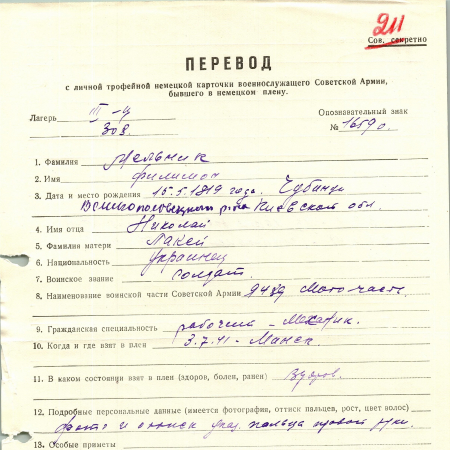 211
Сов. секретно
ПЕРЕВОД
с личной трофейной немецкой карточки военнослужащего Советской Армии,
бывшего в немецком плену.
Лагерь III-
308.
Опознавательный знак
№ 16590.
1. Фамилия Мельник
2. Имя Филимон
3. Дата и место рождения 15.5.1919 года.
р-на Киевской обл.
4. Имя отца Николай
5. Фамилия матери Лакей
6. Национальность Украинец
7. Воинское звание Солдат.
8. Наименование воинской части Советской Армии Мото часть.
9. Гражданская специальность рабочий - Механик.
10. Когда и где взят в плен 3.7.41 - Минск
11. В каком состоянии взят в плен (здоров, болен, ранен) Здоров.
12. Подробные персональные данные (имеется фотография, оттиск пальцев, рост, цвет волос)
фото и оттиск указ. пальца правой руки
13. Особые приметы